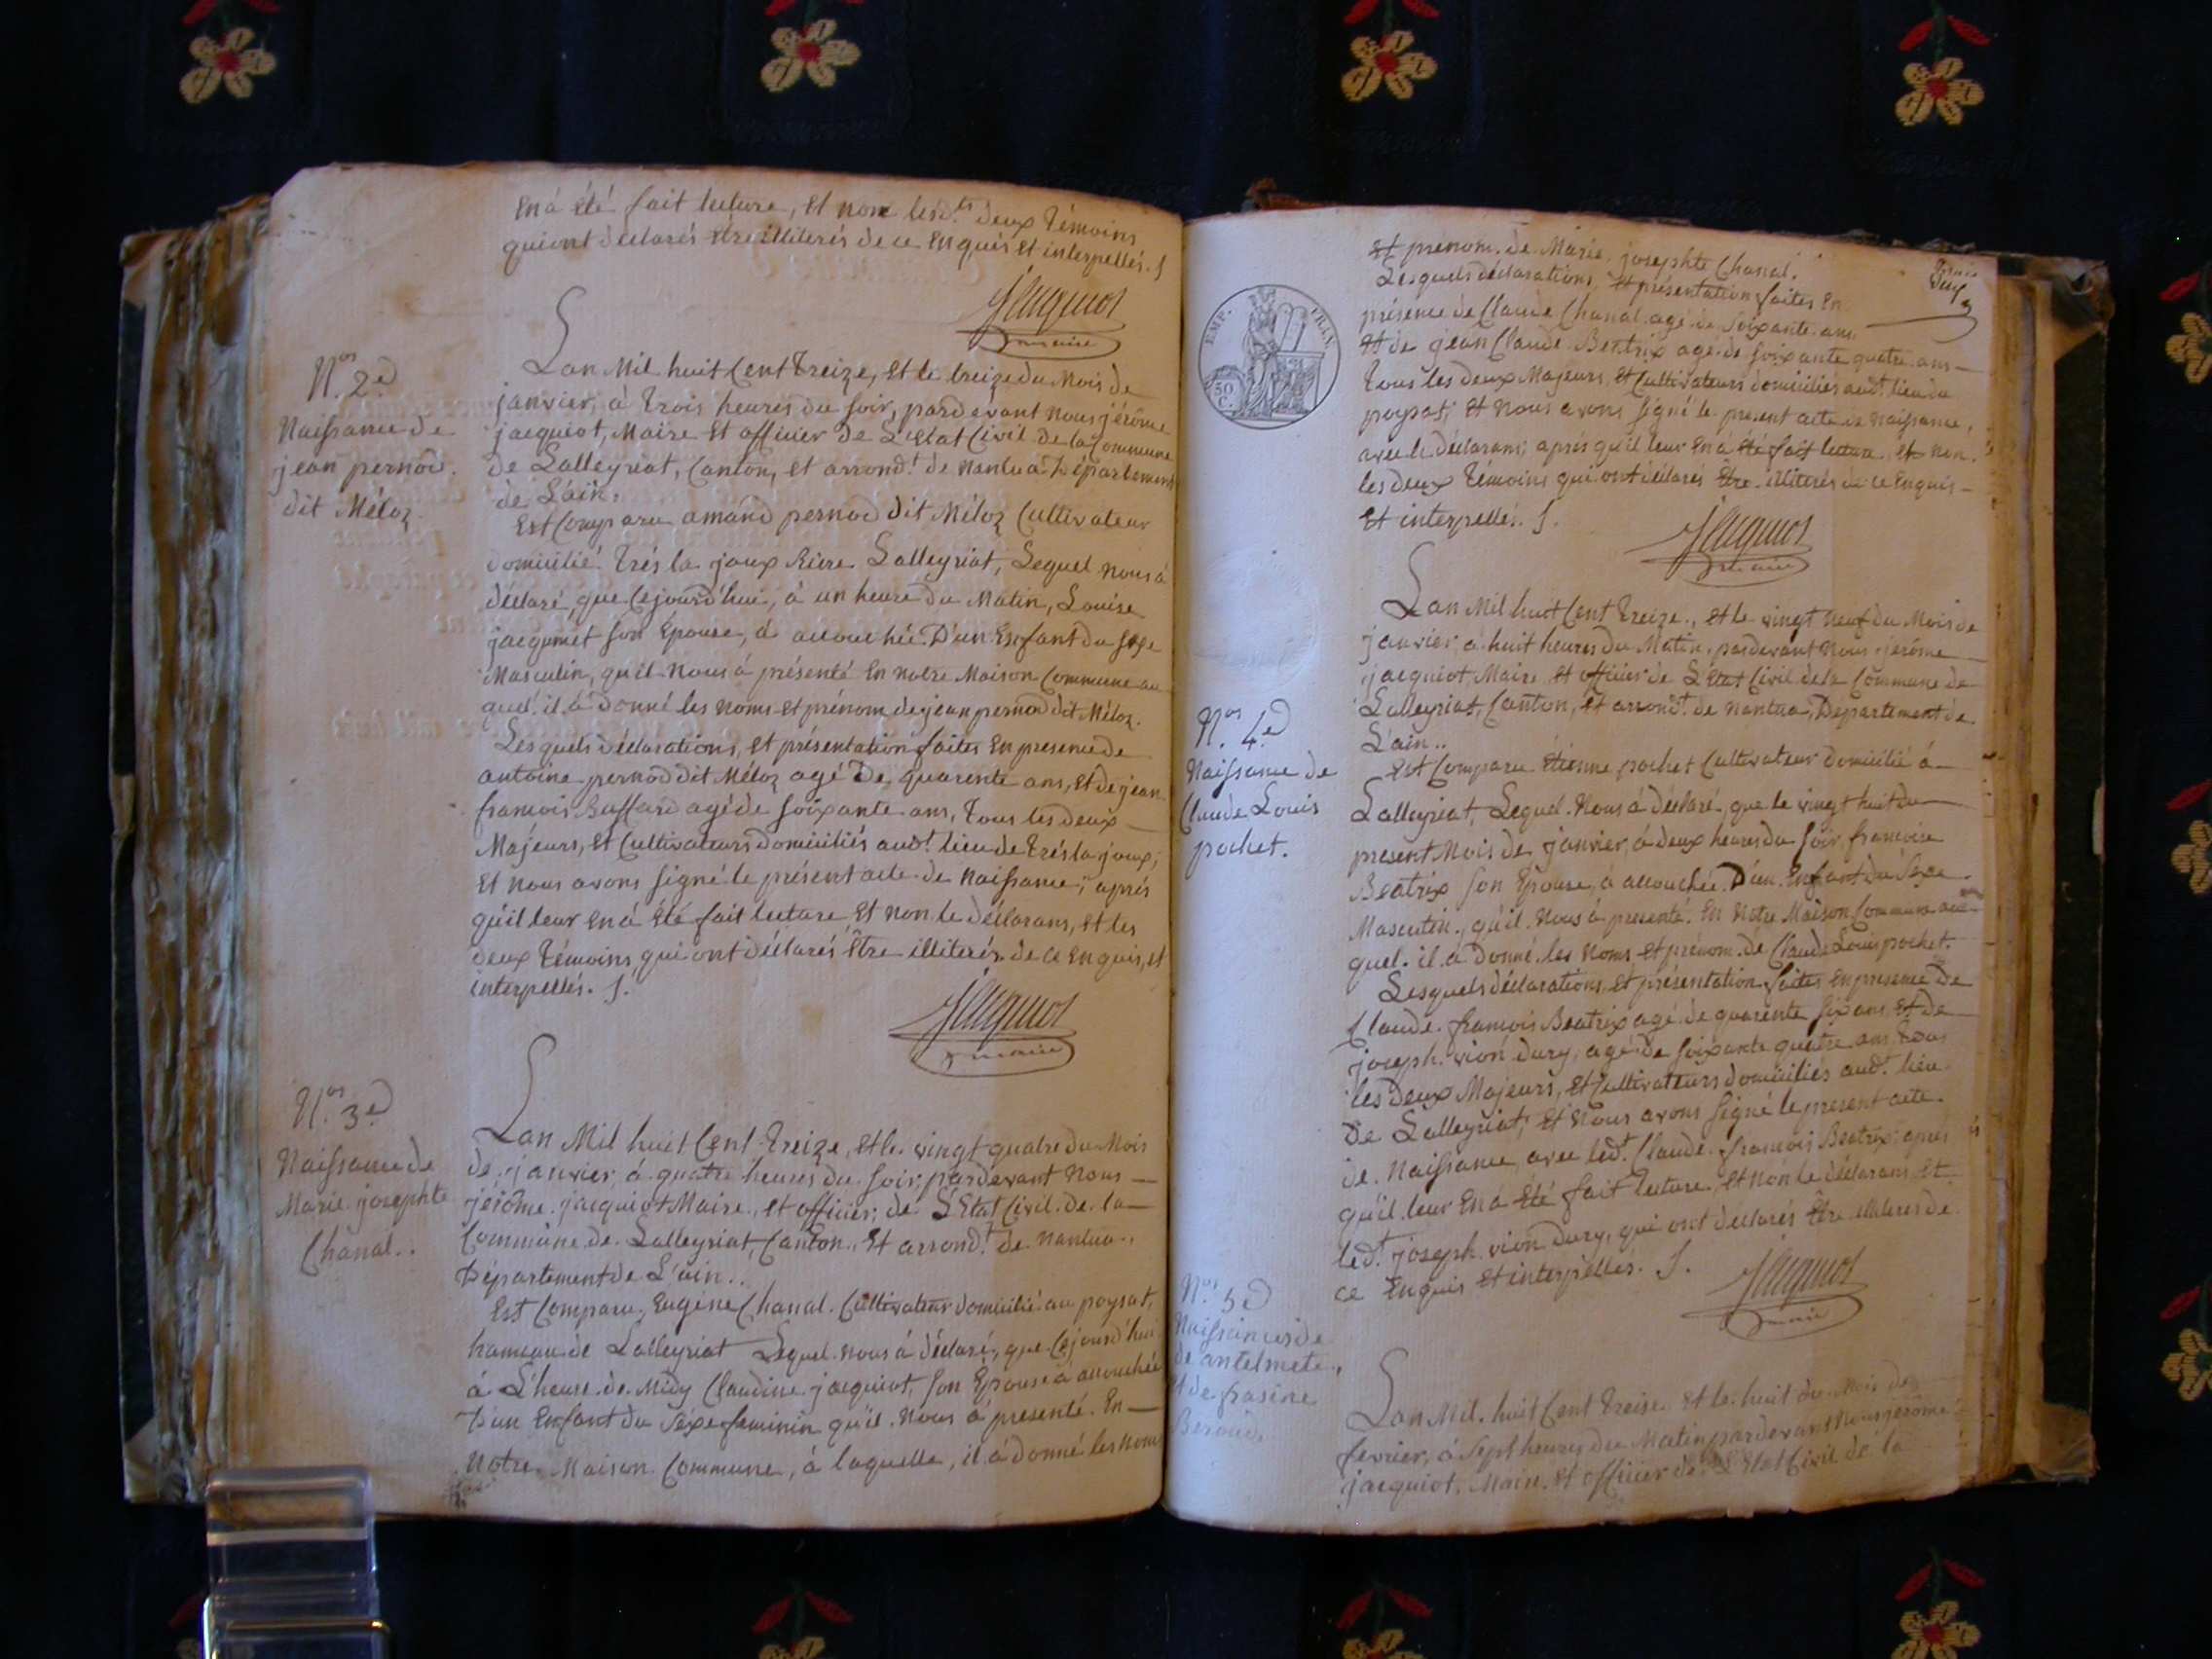 En á été fait lecture, et non lesd.ts deux Témoins
qui ont déclarés être illiterés de ce Enquis et interpellés. /.
Jacquiot
maire
N.os 2.e
Naissance de
jean pernod
dit Méloz.
Lan Mil huit Cent Treize, et le treize du Mois de
janvier, à Trois heures du soir, pardevant nous jérôme
jacquiot, Maire et officier de L'Etat Civil de la Commune
de Lalleyriat, Canton, et arrond.t de nantua Département
de L'ain.
Est Comparu amand pernod dit Méloz Cultivateur
domicilié Trés la joux Riere Lalleyriat, Lequel nous á
déclaré, que Cejourd'hui, á un heure du Matin, Louise
jacquinet son Epouse, á accouchée D'un Enfant du sexe
Masculin, qu'il nous á présenté En notre Maison Commune au
quel il á donné les noms et prénom de jean pernod dit Méloz.
Lesquels déclarations, et présentation faites En presence de
antoine pernod dit Méloz agé De quarente ans, et de jean
francois Buffard agé de soixante ans, Tous les deux
Májeurs, et Cultivateurs domiciliés aud.t lieu de trés la joux,
Et nous avons signé le présent acte de naissance, aprés
qu'il leur en á Eté fait lecture Et non le déclarans, et les
deux Témoins qui ont déclarés Être illiterés de ce enquis, et
interpellés. /.
Jacquiot
maire
N.os 3.e
Naissance de
Marie josephte
Chanal..
Lan Mil huit Cent Treize, et le vingt quatre du Mois
de janvier, á quatre heures du soir, pardevant nous
jérôme jacquiot Maire, et officier de L'Etat Civil de la
Commune de Lalleyriat, Canton, et arrond.t de nantua.,
Département de L'ain..
Est Comparu, Eugéne Chanal Cultivateur domicilié au poysat,
hameau de Lalleyriat Lequel nous á déclaré, que Cejourd'hui
á L'heure de Midy Claudine jacquiot, son Epouse á accouchée
D'un Enfant du sexe feminin qu'il nous á presenté En
Notre Maison Commune, á laquelle, il á donné les noms
et prenom de Marie josephte Chanal.
Lesquels déclarations, et présentation faites En
présence de Claude Chanal agé de soixante ans
et de jean Claude Beatrix agé de soixante quatre ans
Tous les deux Majeurs et Cultivateurs domiciliés aud.t lieu du
poysat, et nous avons signé le present acte de naissance,
avec le déclarans; aprés qu'il leur en á été fait lecture et non
les deux Témoins qui ont déclarés Être illiterés de ce Enquis
et interpellés. /.
Jacquiot
maire
EMP. FRAN.
50 C.
N.os 4.e
Naissance de
Claude Louis
pochet.
Lan Mil huit Cent Treize, et le vingt neuf du Mois de
janvier, á huit heures du Matin, pardevant nous jérôme
jacquiot Maire et officier de L'Etat Civil de la Commune de
Lalleyriat, Canton, et arrond.t de nantua, Département de
L'ain..
Est Comparu Etienne pochet Cultivateur domicilié á
Lalleyriat, Lequel nous á déclaré, que le vingt huit du
present Mois de janvier, á deux heures du soir, francoise
Beatrix son Epouse, á accouchée D'un Enfant du sexe
Masculin, qu'il nous á presenté En Notre Maison Commune au
quel il á donné les noms et prénom de Claude Louis pochet.
Lesquels déclarations, et présentation faites en presence de
Claude francois Beatrix agé de quarente six ans et de
joseph vion dury, agé de soixante quatre ans, Tous
les deux Majeurs, et Cultivateurs domiciliés aud.t lieu
de Lalleyriat, et nous avons signé le present acte
de Naissance, avec led.t Claude francois Beatrix, aprés
qu'il leur En á Eté fait lecture, et non le déclarans et
led.t joseph vion dury, qui ont declarés Être illiteres de
ce Enquis et interpellés. /.
Jacquiot
maire
N.os 5.e
Naissances de
de antelmete.,
et de frasine
Beroud.
Lan Mil huit Cent Treise, et le huit du Mois de
fevrier, á sept heures du Matin pardevant nous jérôme
jacquiot, Maire, et officier de L'Etat Civil de la